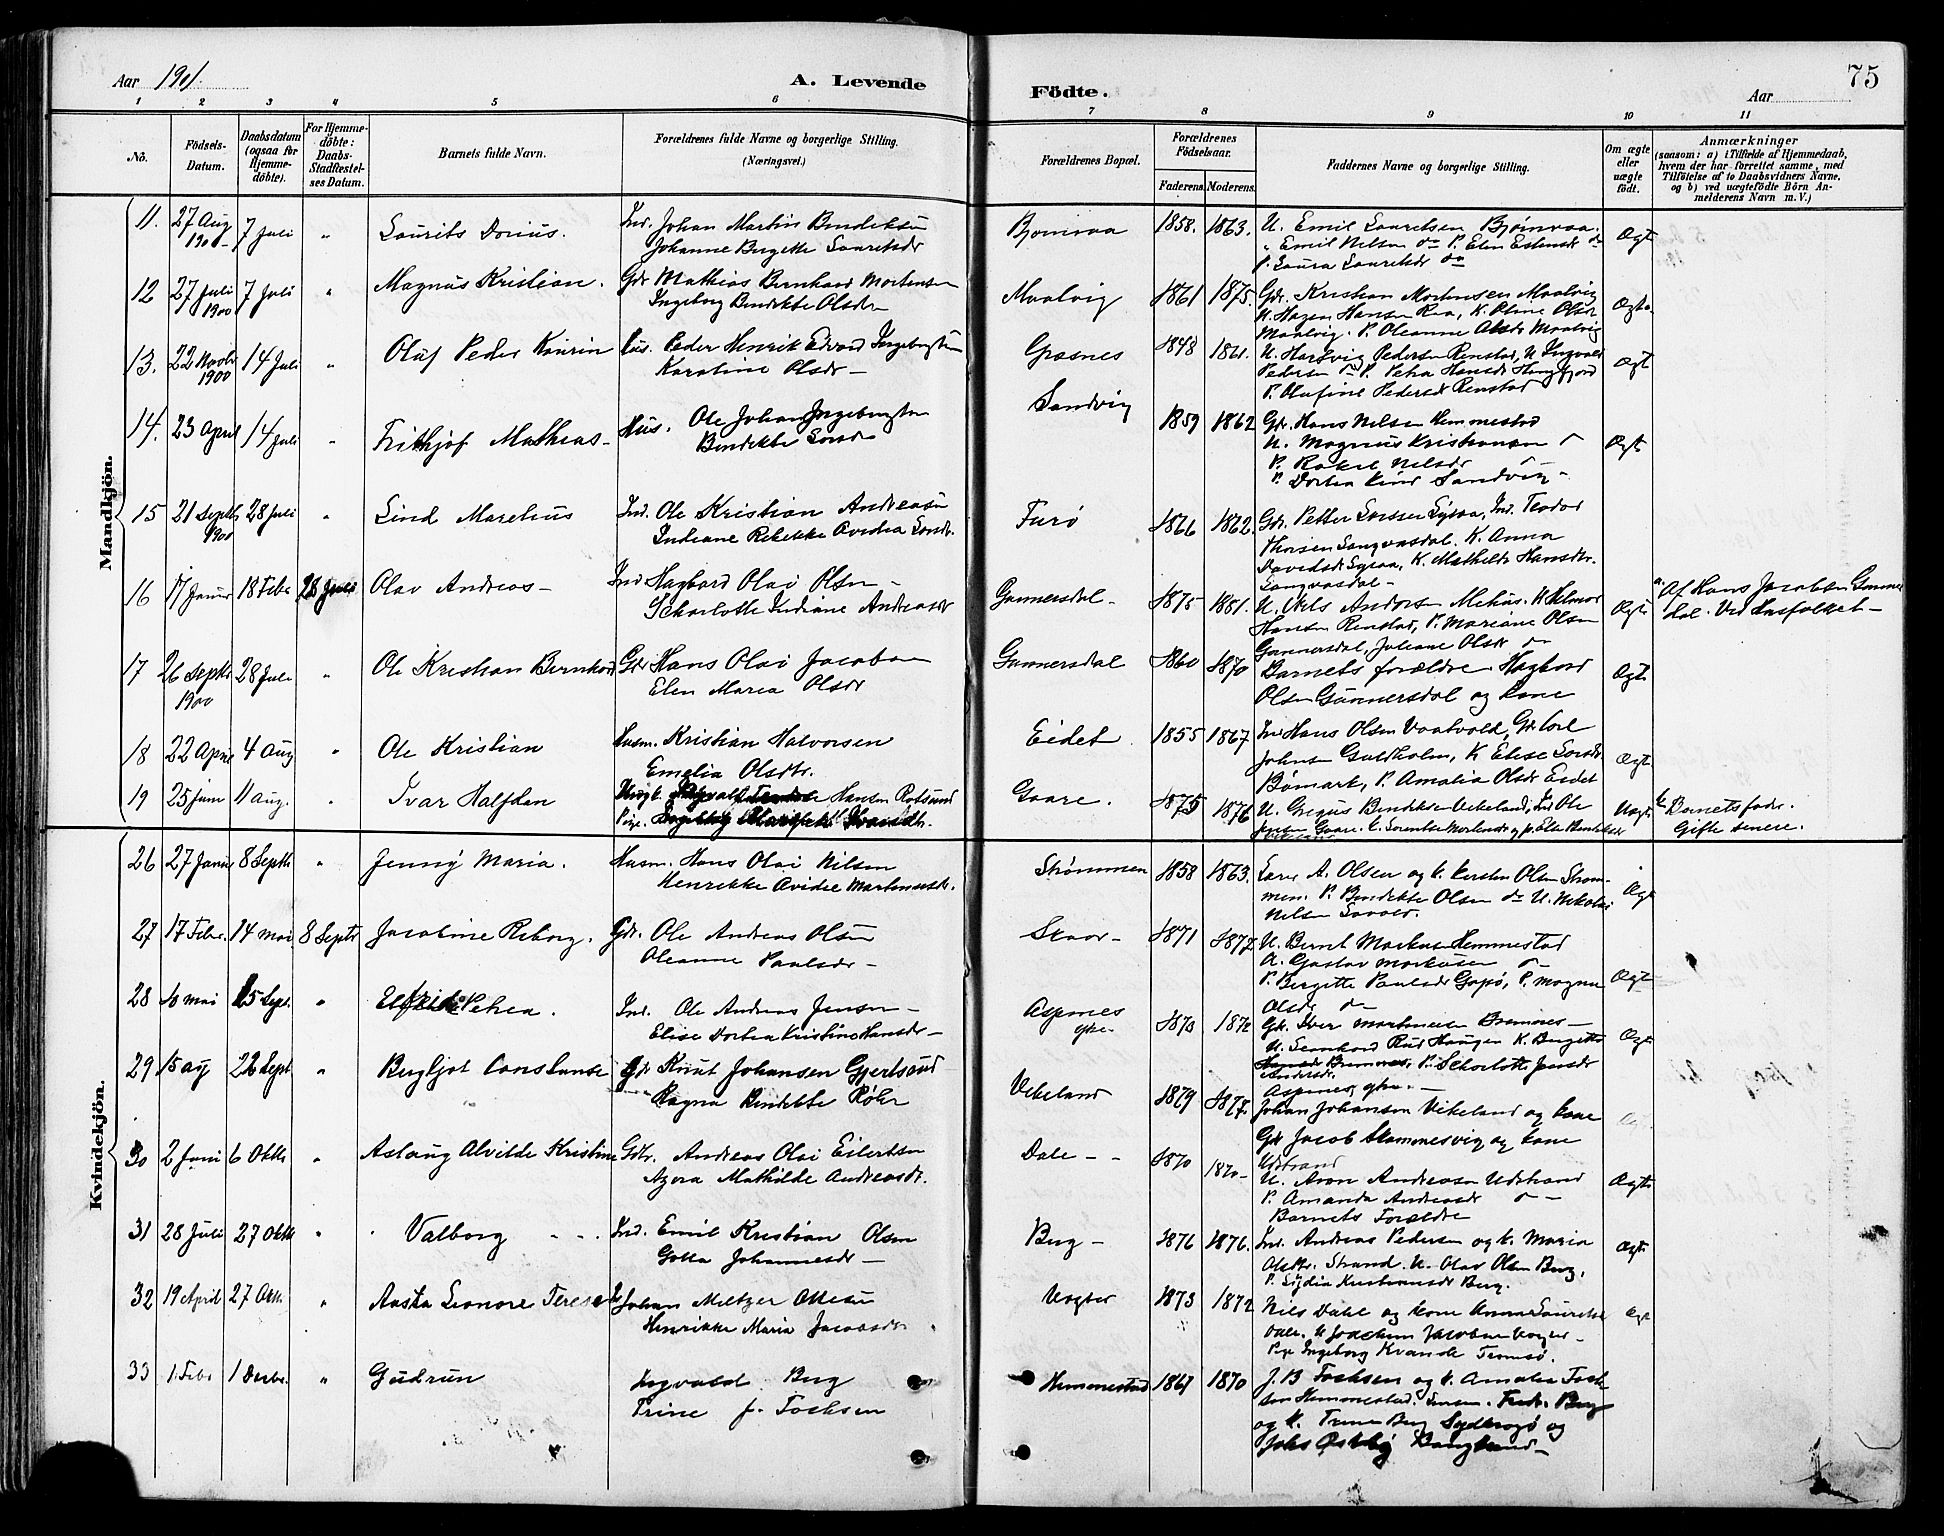 Aar 1901.
A. Levende
Födte.
Aar
75
1 2 3 4 5 6 7 8 9 10 11
No.
Födsels-Datum.
Daabsdatum (ogsaa for Hjemme-döbte).
For Hjemme-döbte: Daabs-Stadfæstel-ses Datum.
Barnets fulde Navn.
Forældrenes fulde Navne og borgerlige Stilling.
(Næringsvei.)
Forældrenes Bopæl.
Forældrenes Födselsaar.
Faderens. Moderens.
Faddernes Navne og borgerlige Stilling.
Om ægte eller uægte födt.
Anmærkninger
(saasom: a) i Tilfælde af Hjemmedaab, hvem der har forrettet samme, med Tilföielse af to Daabsvidners Navne, og b) ved uægtefödte Börn An-melderens Navn m. V.)
Mandkjön.
11. 27 Aug 1900 7 Juli " Laurits Dorius. Ind. Johan Martin Bendiksen
Johanne Birgitte Lauritsdr
Bjørnraa 1858. 1863. U. Emil Lauritsen Bjørnraa.
" Emil Nilsen do P. Elen Eslensdr do
P. Laura Lauritsdr do
Ægt
12 27 Juli 1900 7 Juli " Magnus Kristian. Gdr Mathias Bernhard Mortensen
Ingeborg Bendikte Olsdr
Maalvig 1861 1875. Gdr. Kristian Mortensen Maalvig
U. Hagen Hansen Rea, K. Oline Olsdr
Maalvig. P. Oleanne Olsdr Maalvig
Ægte
13. 22 Novbr 1900 14 Juli " Oluf Peder Kaurin Hus. Peder Henrik Edvard Ingebrigtsen
Karoline Olsdr
Grasnes 1848 1861. U. Hartvig Pedersen Renstad, U. Ingvald
Pedersen do P. Petra Hansdr
P. Olufine Pedersdr Renstad
Ægt
14. 23 April 14 Juli " Frithjof Mathias Hus. Ole Johan Ingebrigtsen
Bendikte Larsdr
Sandvig 1859 1862 Gdr. Hans Nilsen Hemmestad
U. Magnus Kristiansen do
P. Rakel Nilsdr
P. Dortea Sandvig
Ægt
15 21 Septbr 1900 28 Juli " Lind Marelius Ind. Ole Kristian Andreasen
Indiane Rebekke Ovidia Larsdr.
Furø 1866 1862. Gdr. Petter Larssen Lysaa, Ind. Teodor
Thorsen Langvasdal. K. Anna
Davidsdr Lysaa, K. Mathilde Hansdr.
Langvasdal
16 17 Januar 18 Febr 28 Juli Olav Andreas Ind Hagbard Olai Olsen
Scharlotte Indiane Andreasdr
Gunnersdal 1875 1881. U. Nils Andors Mehus. U. Hilmar
Hansen Renstad, P. Mariane Olsen
Gunnersdal, Juliane Olsdr do
Ægte
a. Af Hans Jacobsen Gunnersdal. Ved Husfolket
17 26 Septbr 1900 28 Juli " Ole Kristian Bernhard Gdr Hans Olai Jacobsen
Elen Maria Olsdr
Gunnersdal 1860 1870 Barnets forældre Hagbard
Olsen Gunnersdal og kone
Ægt.
18 22 April 4 Aug " Ole Kristian Husm. Kristian Halvorsen
Emelia Olsdtr.
Eidet. 1855 1867 Ind Hans Olsen Vaatvold, Gdr Carl
Johnsen Guldholm, K. Elise Larsdr
Bømark, P. Amalia Olsdr Eidet
Ægt
19 25 juni 11 Aug. " Ivar Halfdan Ungk. Hansen Rotsund
Pige.
Gaare. 1875 1876 U. Gregus Bendiksen Vikeland, Ind. Ole
Gaare.
Uægt
b. Barnets fader.
Gifte senere.
Kvindekjön.
26 27 Januar 8 Septbr " Jenny Maria. Husm. Hans Olai Nilsen
Henrikke Ovidie Martinusdr.
Strømmen 1858 1863. Lars A. Olsen og k. Kirsten Olsen Strøm-
men. P. Bendikte Olsen do U. Nikolai
Nilsen
Ægt
27 17 Febr. 14 mai 8 Septbr Jacobine Reborg. Gdr. Ole Andreas Olsen
Oleanne Paulsdr
Skaar 1871 1877. U. Bernt Markusen Hemmestad
U. Gustav Markusen do
P. Birgitte Paulsdr Gapø, P. Magna
Olsdr do
Ægt
28 10 mai 15 Sept. " Elfride Petrea. Ind. Ole Andreas Jensen
Elise Dortea Kristine Hansdr
Aspenes 1873 1872 Gdr. Iver Martinusen Bremnes
U. Leonhard Rud Haugen K. Birgitte
P. Scharlotte Jensdr
Aspenes
Ægt
29 15 aug 22 Sept " Bergljot Constanse Gdr Knut Johansen Gjertsund
Ragna Bendikte Röhr
Vikeland 1879 1877. Johan Johansen Vikeland og kone
Gdr Jacob Skammesvig og kone
30 2 Juni 6 Oktbr " Aslaug Alvilde Kristine Gdr. Andreas Olai Eilertsen
Azora Mathilde Andreasdr.
Dale 1870 1870 Udstrand
U. Aron Andreasen Udstrand
P. Amanda Andreasdr do
Barnets Forældre
Ægte
31 28 Juli 27 Oktbr " Valborg Ind. Emil Kristian Olsen
Gotta Johannesdr
Berg 1876 1876. Ind. Andreas Pedersen og k. Maria
Olsdtr. Strand. U. Olav Olsen Berg,
P. Lydia Kristiansdr Berg.
Ægt
32 19 April 27 Okt. " Aasta Leonore Terese Johan Meltzer Ottesen
Henrikke Maria Jacobsdr
1873 1872 Nils Dahl og kone Anna Lauritze
Dale. U. Joachim Jacobsen
Pige Ingeborg Kvande Tromsø.
Ægt
33 1 Febr 1 Decbr. " Gudrun Ingvald Berg
Trine J. Fochsen
Hemmestad 1867 1870 J. B. Fochsen og k. Amalia Foch-
sen Hemmestad. Berg
og k. Trine Berg og
Johs Østby